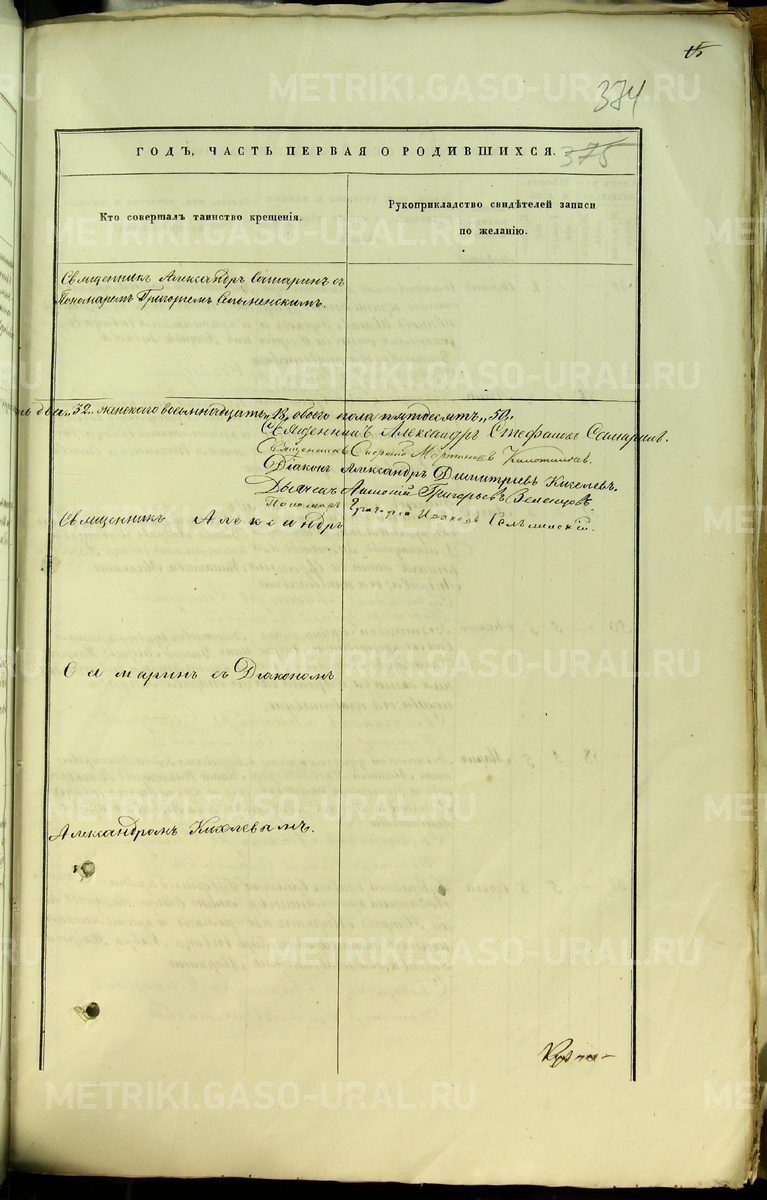 15
374
ГОДЪ, ЧАСТЬ ПЕРВАЯ О РОДИВШИХСЯ.
375
Кто совершалъ таинство крещенія.
Рукоприкладство свидѣтелей записи
по желанію.
Священникъ Александръ Самаринъ съ
Пономаремъ Григоріемъ
два „32„ женскаго восемнадцать „18„ обоего пола пятьдесятъ „50„
Священникъ Александръ Стефановъ Самаринъ.
Священникъ
Діаконъ Александръ Димитріевъ Киселевъ.
Дьячекъ Григорьевъ Зеленцовъ.
Пономарь Григорій Ивановъ
Священникъ Александръ
Самаринъ съ Діакономъ
Александромъ Киселевымъ.
METRIKI.GASO-URAL.RU